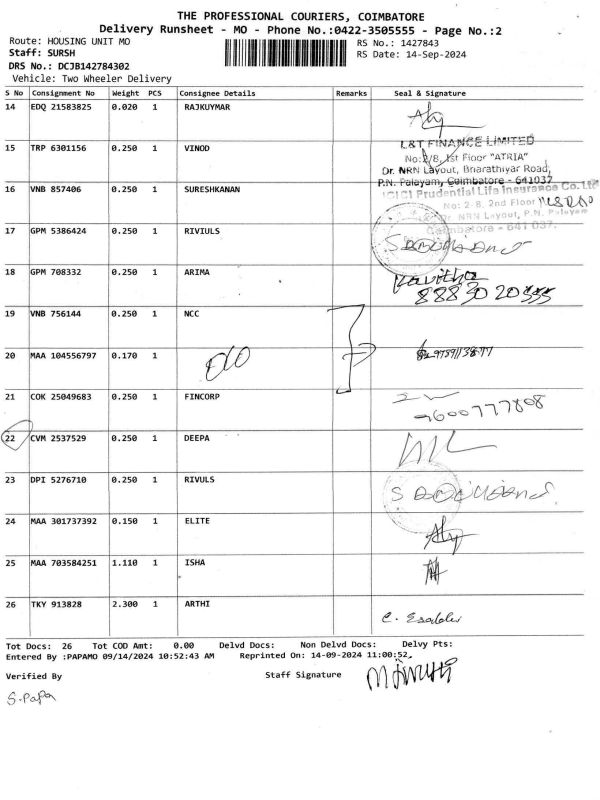 THE PROFESSIONAL COURIERS, COIMBATORE
Delivery Runsheet - MO - Phone No.:0422-3505555 - Page No.:2
Route: HOUSING UNIT MO RS No.: 1427843
Staff: SURSH RS Date: 14-Sep-2024
DRS No.: DCJB142784302
Vehicle: Two Wheeler Delivery
S No Consignment No Weight PCS Consignee Details Remarks Seal & Signature
14 EDQ 21583825 0.020 1 RAJKUYMAR
15 TRP 6301156 0.250 1 VINOD
L&T FINANCE LIMITED
No:2/8, 1st Floor "ATRIA"
Dr. NRN Layout, Bharathiyar Road,
P.N. Palayam, Coimbatore - 641037
16 VNB 857406 0.250 1 SURESHKANAN
ICICI Prudential Life Insurance Co. Ltd
No: 2-8, 2nd Floor
Dr. NRN Layout, P.N. Palayam
Coimbatore - 641 037.
17 GPM 5386424 0.250 1 RIVIULS
18 GPM 708332 0.250 1 ARIMA
Kavitha
88830 20555
19 VNB 756144 0.250 1 NCC
20 MAA 104556797 0.170 1
21 COK 25049683 0.250 1 FINCORP
9600777808
22 CVM 2537529 0.250 1 DEEPA
23 DPI 5276710 0.250 1 RIVULS
24 MAA 301737392 0.150 1 ELITE
25 MAA 703584251 1.110 1 ISHA
26 TKY 913828 2.300 1 ARTHI
Tot Docs: 26 Tot COD Amt: 0.00 Delvd Docs: Non Delvd Docs: Delvy Pts:
Entered By :PAPAMO 09/14/2024 10:52:43 AM Reprinted On: 14-09-2024 11:00:52,
Verified By Staff Signature
S.Papa